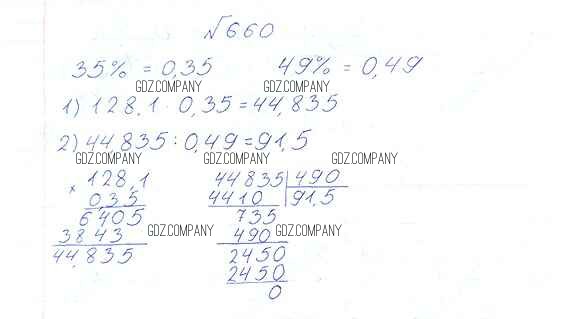 №660
35% = 0,35 49% = 0,49
GDZ.COMPANY GDZ.COMPANY
1) 128,1 · 0,35 = 44,835
2) 44,835 : 0,49 = 91,5
GDZ.COMPANY GDZ.COMPANY GDZ.COMPANY
× 128,1
0,35
6405
3843
44,835
GDZ.COMPANY GDZ.COMPANY
44835 | 490
4410 | 91,5
735
490
2450
2450
0